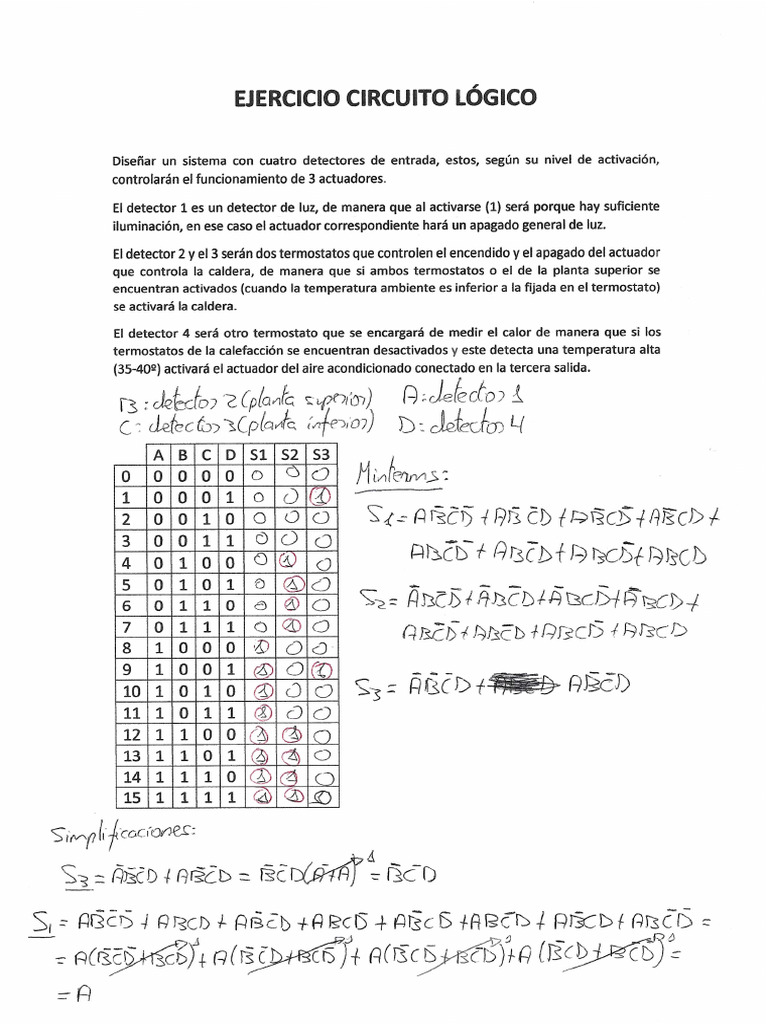 EJERCICIO CIRCUITO LÓGICO
Diseñar un sistema con cuatro detectores de entrada, estos, según su nivel de activación,
controlarán el funcionamiento de 3 actuadores.
El detector 1 es un detector de luz, de manera que al activarse (1) será porque hay suficiente
iluminación, en ese caso el actuador correspondiente hará un apagado general de luz.
El detector 2 y el 3 serán dos termostatos que controlen el encendido y el apagado del actuador
que controla la caldera, de manera que si ambos termostatos o el de la planta superior se
encuentran activados (cuando la temperatura ambiente es inferior a la fijada en el termostato)
se activará la caldera.
El detector 4 será otro termostato que se encargará de medir el calor de manera que si los
termostatos de la calefacción se encuentran desactivados y este detecta una temperatura alta
(35-40º) activará el actuador del aire acondicionado conectado en la tercera salida.
B: detector 2 (planta superior) A: detector 1
C: detector 3 (planta inferior) D: detector 4
A B C D S1 S2 S3
0 0 0 0 0 0 0 0
1 0 0 0 1 0 0 1
2 0 0 1 0 0 0 0
3 0 0 1 1 0 0 0
4 0 1 0 0 0 1 0
5 0 1 0 1 0 1 0
6 0 1 1 0 0 1 0
7 0 1 1 1 0 1 0
8 1 0 0 0 1 0 0
9 1 0 0 1 1 0 1
10 1 0 1 0 1 0 0
11 1 0 1 1 1 0 0
12 1 1 0 0 1 1 0
13 1 1 0 1 1 1 0
14 1 1 1 0 1 1 0
15 1 1 1 1 1 1 0
Minterms:
S1 = AB̄C̄D̄ + AB̄C̄D + AB̄CD̄ + AB̄CD +
ABC̄D̄ + ABC̄D + ABCD̄ + ABCD
S2 = ĀBC̄D̄ + ĀBC̄D + ĀBCD̄ + ĀBCD +
ABC̄D̄ + ABC̄D + ABCD̄ + ABCD
S3 = ĀB̄C̄D + AB̄C̄D
Simplificaciones:
S3 = ĀB̄C̄D + AB̄C̄D = B̄C̄D(Ā+A)¹ = B̄C̄D
S1 = AB̄C̄D̄ + ABCD + AB̄C̄D + ABCD̄ + AB̄CD̄ + ABC̄D + AB̄CD + ABC̄D̄ =
= A(B̄C̄D̄+BCD)¹ + A(B̄C̄D+BCD̄)¹ + A(B̄CD̄+BC̄D)¹ + A(B̄CD+BC̄D̄)¹ =
= A